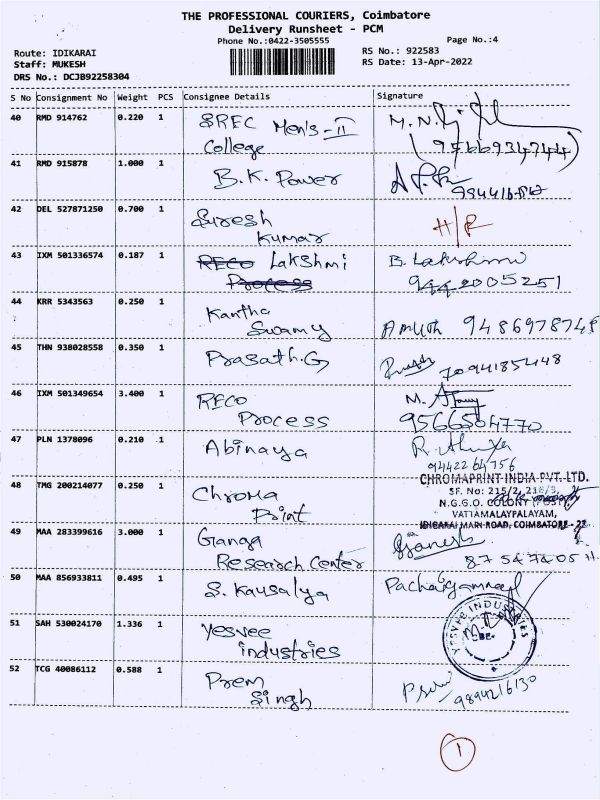 THE PROFESSIONAL COURIERS, Coimbatore
Delivery Runsheet - PCM
Phone No.:0422-3505555
Page No.:4
Route: IDIKARAI
RS No.: 922583
Staff: MUKESH
RS Date: 13-Apr-2022
DRS No.: DCJB92258304
S No Consignment No Weight PCS Consignee Details Signature
40 RMD 914762 0.220 1 SREC Men's-II
College
41 RMD 915878 1.000 1 B.K. Power
42 DEL 527871250 0.700 1 Suresh H/R
Kumar
43 IXM 501336574 0.187 1 RECO Lakshmi B. Lakshmi
Process 9442005251
44 KRR 5343563 0.250 1 Kantha
Swamy Amuth 9486978748
45 THN 938028558 0.350 1 Prasath.G 7094185448
46 IXM 501349654 3.400 1 RECO
Process 9566504770
47 PLN 1378096 0.210 1 Abinaya
9442264756
CHROMAPRINT INDIA PVT. LTD.
48 TMG 200214077 0.250 1 Chroma SF. No: 215/2, 218/3,
Print N.G.G.O. COLONY (POST)
VATTAMALAYPALAYAM,
IDIGARAI MAIN ROAD, COIMBATORE - 22
49 MAA 283399616 3.000 1 Ganga Ganesh
Research Center
50 MAA 856933811 0.495 1 S. Kausalya
51 SAH 530024170 1.336 1 Yesvee YESVEE INDUSTRIES
industries CBE-
52 TCG 40086112 0.588 1 Prem
Singh 9894216130
1